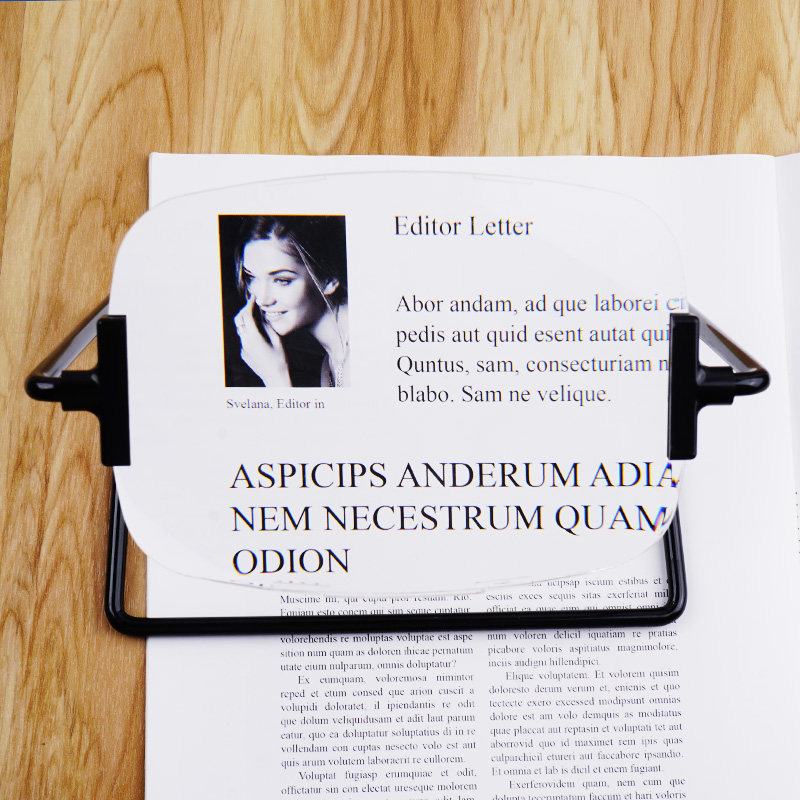 Editor Letter
Abor andam, ad que laborei
pedis aut quid esent autat qui
Quntus, sam, consecturiam
blabo. Sam ne velique.
Svelana, Editor in
ASPICIPS ANDERUM ADIA
NEM NECESTRUM QUAM
ODION
volorehendis re moluptas voluptae est aspe
sition num quam as doloren ihicae pernatum
utate eium nulparum, omnis doluptatur?
Ex eumquam, voloremosa nimintor
reped et etum consed que arion cuscil a
volupidi doloratet, il ipiendantis re odit
que dolum veliquidusam et adit laut parum
eatur, quo ea doluptatur soluptatius di in re
vollendam con cuptas nesecto volo est aut
quis arum volutem laboraerit re cullorem.
Voluptat fugiasp erumquiae et odit,
offictatur sin con electat ureseque molorem
ucipsap iscium estibus et
escius exces sequis sitas exerferiat
num voloren delicil iquatiam re pratias
picabore voloris aspitatius magnimolore,
inciis audigni hillendipici.
Elique voluptatem. Et volorem quisum
doloresto derum verum et, enienis et quo
tectecte exero excessed modipsunt omnias
dolore est am volo demquis as moditatus
quae placcat aut reptasin et voluptati tet aut
aborrovid quo id maximet rem ipis quas
culparchicil etureri aut faccabore ipsandio.
Et omna et lab is dicil et enem fugiant.
Exerferovidem quam, nem cum que
dolupta teceruptatum faccum et hari voloris